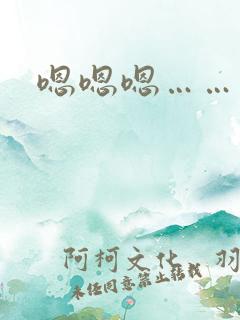 嗯嗯嗯……
阿柯文化 羽
未经同意禁止转载